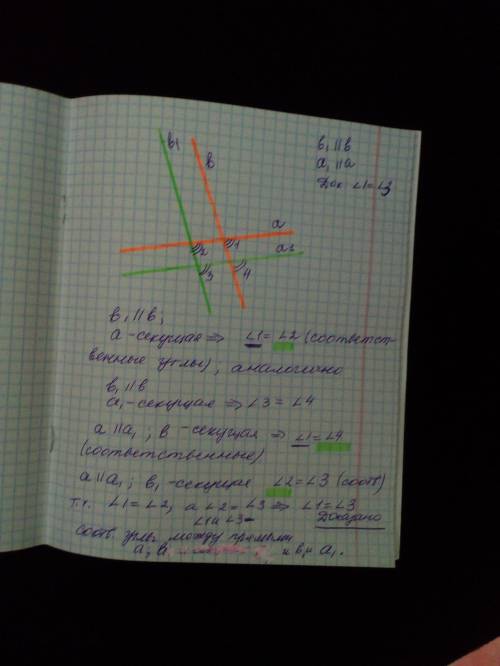 в₁ || в
a₁ || a
Док. ∠1=∠3
в₁
в
a
a₁
2
1
3
4
в₁ || в;
a-секущая ⇒ ∠1 = ∠2 (соответст-
венные углы), аналогично
в₁ || в
a₁-секущая ⇒ ∠3 = ∠4
a || a₁; в -секущая ⇒ ∠1 = ∠4
(соответственные)
a || a₁; в₁ -секущая ∠2 = ∠3 (соотв)
т.к. ∠1 = ∠2, а ∠2 = ∠3 ⇒ ∠1 = ∠3
∠1 и ∠3 - Доказано
соотв. углы между прямыми
a, в и в₁ и a₁.